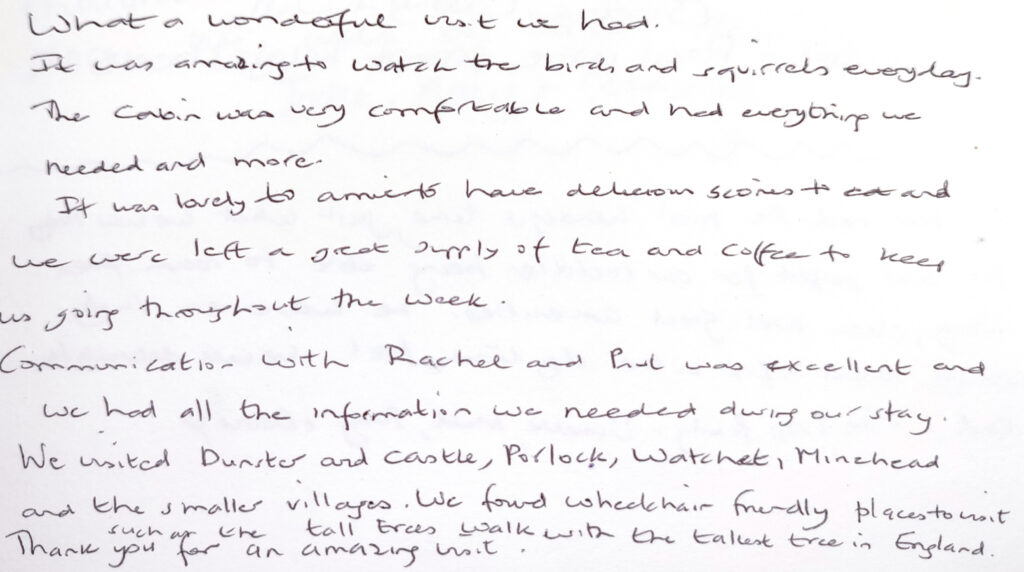 What a wonderful visit we had.
It was amazing to watch the birds and squirrels everyday.
The cabin was very comfortable and had everything we
needed and more.
It was lovely to arrive to have delicious scones to eat and
we were left a great supply of tea and coffee to keep
us going throughout the week.
Communication with Rachel and Paul was excellent and
we had all the information we needed during our stay.
We visited Dunster and castle, Porlock, Watchet, Minehead
and the smaller villages. We found wheelchair friendly places to visit
such as the tall trees walk with the tallest tree in England.
Thank you for an amazing visit.